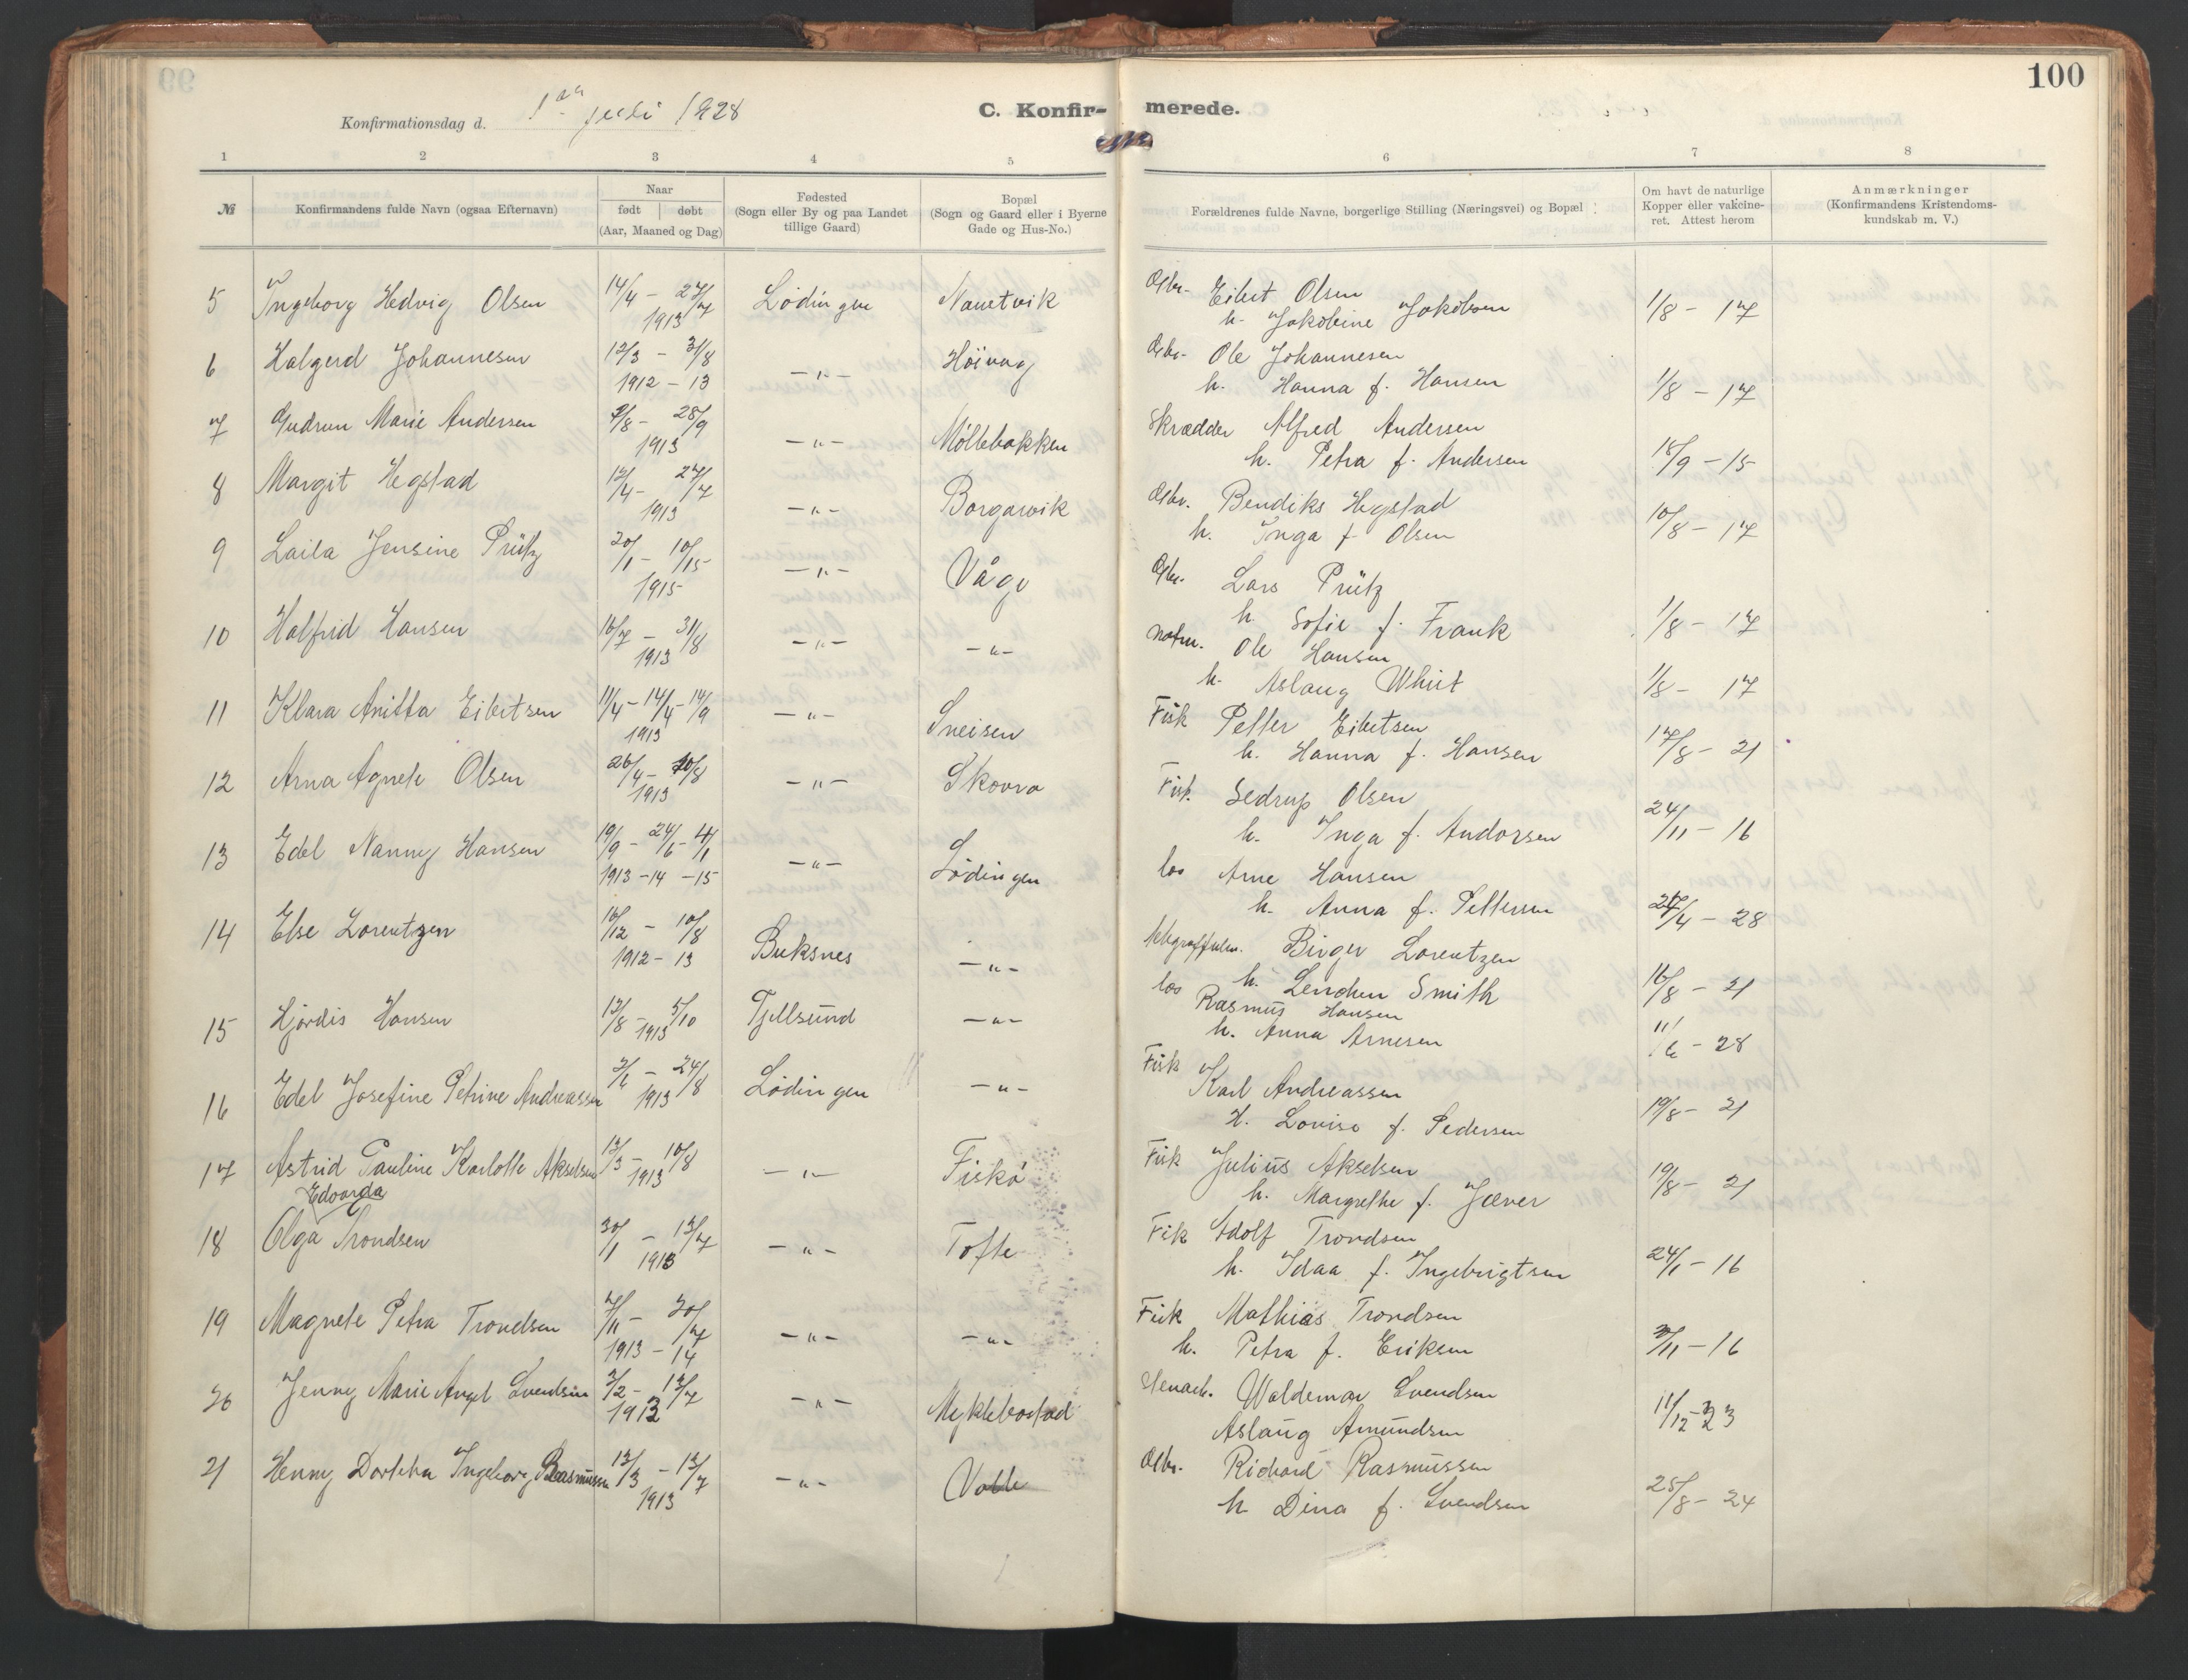 100
Konfirmationsdag d. 1ste juli 1928
C. Konfir- merede.
1 2 3 4 5 6 7 8
№ Konfirmandens fulde Navn (ogsaa Efternavn) Naar født døbt (Aar, Maaned og Dag) Fødested (Sogn eller By og paa Landet tillige Gaard) Bopæl (Sogn og Gaard eller i Byerne Gade og Hus-No.) Forældrenes fulde Navne, borgerlige Stilling (Næringsvei) og Bopæl Om havt de naturlige Kopper eller vakcine- ret. Attest herom Anmærkninger (Konfirmandens Kristendoms- kundskab m. V.)
5 Ingeborg Hedvig Olsen 14/4 - 27/7 1913 Lødingen Nautvik Gbr. Eibert Olsen 1/8 - 17
h. Jakobine Jakobsen
6 Halgerd Johannesen 12/3 - 3/8 1912 - 13 -"- Høivag Gbr. Ole Johannesen 1/8 - 17
h. Hanna f. Hansen
7 Gudrun Marie Andersen 9/8 - 28/9 1913 -"- Møllebakken Skrædder Alfred Andersen 18/9 - 15
h. Petra f. Andersen
8 Margit Hegstad 12/4 - 27/7 1913 -"- Borgarvik Gbr. Bendiks Hegstad 10/8 - 17
h. Inga f. Olsen
9 Laila Jensine Prütz 20/1 - 10/15 1915 -"- Våge Gbr. Lars Prütz 1/8 - 17
h. Sofie f. Frank
10 Halfrid Hansen 16/7 - 31/8 1913 -"- -"- Ole Hansen 1/8 - 17
h. Aslaug Whist
11 Klara Anitta Eibertsen 11/4 - 14/4 - 14/9 1913 -"- Sneisen Fisk Petter Eibertsen 17/8 - 21
h. Hanna f. Hansen
12 Arna Agnete Olsen 26/4 - 10/8 1913 -"- Skovro Fisk. Sedrup Olsen 24/11 - 16
h. Inga f. Andorsen
13 Edel Nanny Hansen 19/9 - 24/6 - 4/1 1913 - 14 - 15 -"- Lødingen los Arne Hansen 24/4 - 28
h. Anna f. Pettersen
14 Else Lorentzen 16/12 - 10/8 1912 - 13 Buksnes -"- Birger Lorentzen 16/8 - 21
h. Lenchen Smith
15 Hjørdis Hansen 12/8 - 5/10 1913 Tjellsund -"- los Rasmus Hansen 11/6 - 28
h. Anna Arnesen
16 Edel Josefine Petrine Andreassen 3/6 - 24/8 1913 Lødingen -"- Fisk Karl Andreassen 19/8 - 21
H. Lovise f. Pedersen
17 Astrid Pauline Karlotte Akselsen 12/3 - 10/8 1913 -"- Fiskø Fisk Julius Akselsen 19/8 - 21
h. Margrethe f. Jæver
Edvarda
18 Olga Trondsen 30/1 - 13/7 1913 -"- Tofte Fisk Adolf Trondsen 24/1 - 16
h. Idaa f. Ingebrigtsen
19 Magnete Petra Trondsen 7/11 - 20/7 1913 - 14 -"- -"- Fisk Mathias Trondsen 3/11 - 16
h. Petra f. Eriksen
20 Jenny Marie Angel Svendsen 3/2 - 13/7 1913 -"- Myklebostad Waldemar Svendsen 11/12 - 23
Aslaug Amundsen
21 Henny Dorthea Ingeborg Rasmussen 12/3 - 13/7 1913 -"- Votle Gbr. Richard Rasmussen 25/8 - 24
h Dina f. Svendsen